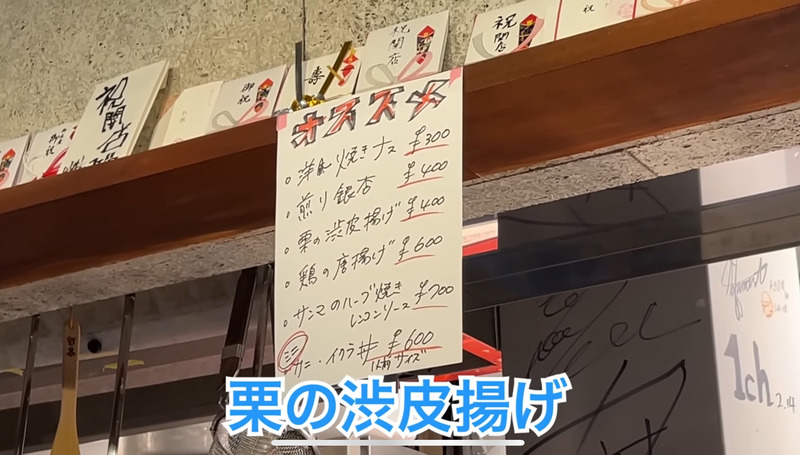 祝開店
祝
御祝
寿
祝開店
祝開店
祝
祝
オススメ
・洋風焼きナス ¥300
・煎り銀杏 ¥400
・栗の渋皮揚げ ¥400
・鶏の唐揚げ ¥600
・サンマのハーブ焼き
レンコンソース ¥700
ミニ・イクラ丼 ¥600
サイズ
1ch
2.14
栗の渋皮揚げ